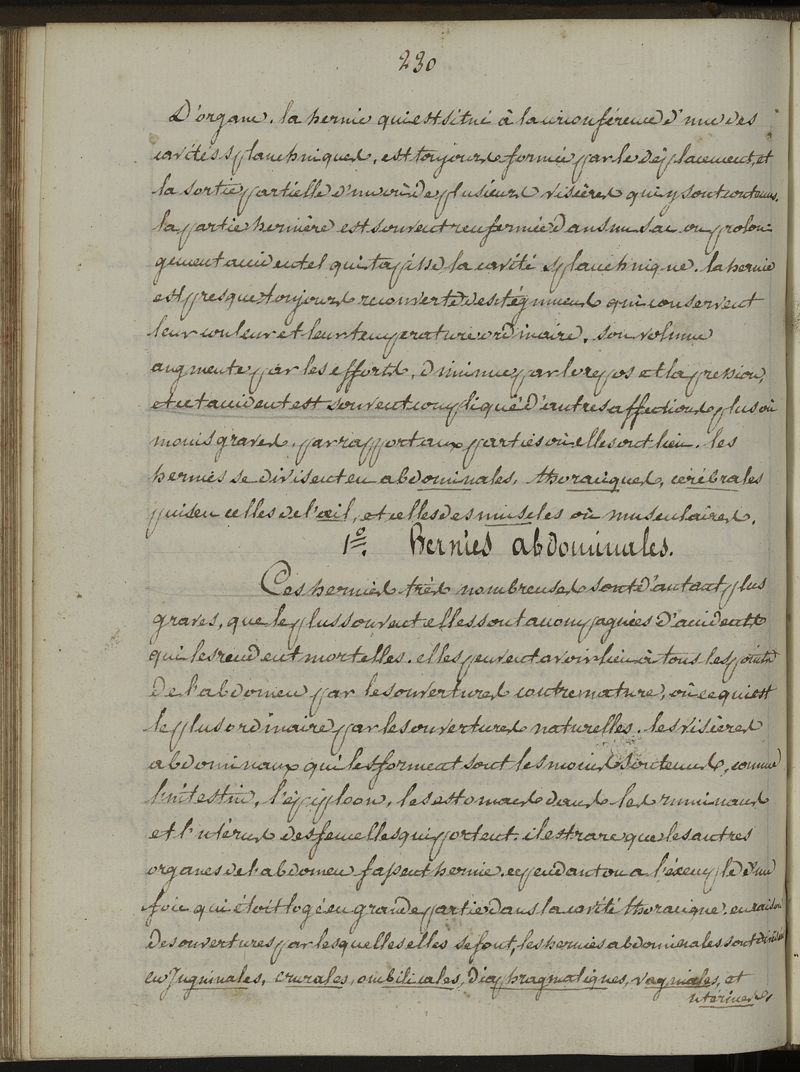 230
D'organe. la hernie qui est situé à la circonférence d'une des
cavités splanchniques, est toujours formée par le déplacement, et
la sortie partielle d'un ou de plusieurs viscères qui y sont contenus.
la partie hernière est souvent renfermée dans un sac ou prolon-
gement accidentel qui tapisse la cavité splanchnique. la hernie
est presque toujours recouverte des téguments qui conservent
leur couleur et leur température ordinaire, son volume
augmente par les efforts, diminue par le repos et la pression,
et cet accident est souvent compliqué d'autres affections plus où
moins graves, par rapport aux parties où elles ont lieu. les
hernies se divisent en abdominales, thoraciques, cérébrales
puis en celles de l'œil, et celles des muscles où musculaires.
1º. Hernies abdominales.
Ces hernies très nombreuses sont d'autant plus
graves, que le plus souvent elles sont accompagnées d'accidents
qui les rendent mortelles. elles peuvent avoir lieu à tous les points
de l'abdomen par les ouvertures contre nature, où ce qui est
le plus ordinaire par les ouvertures naturelles. les visières
abdominaux qui les forment sont les moins soutenus, comme
l'intestin, l'épiploon, les estomacs dans les ruminans
et l'utérus des femelles qui portent. il est rare que les autres
organes de l'abdomen fassent hernie. cependant on a l'éxemple d'un
foie qui étoit logé en grande partie dans la cavité thoracique. en raison
des ouvertures par lesquelles elles se font, les hernies abdominales sont divisées
en Inguinales, crurales, ombilicales, diaphragmatiques, vaginales, et
utérines,